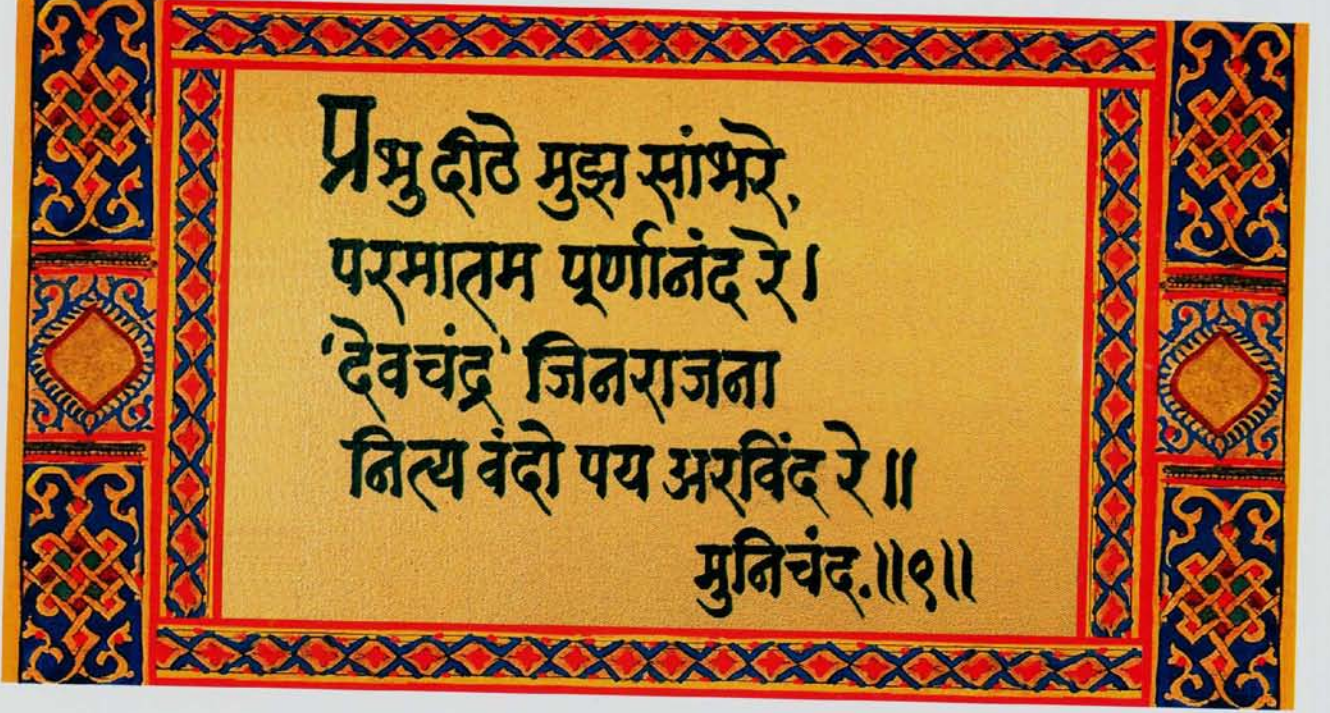 प्रभु दीठे मुझ सांभरे,
परमातम पूर्णानंद रे।
'देवचंद्र' जिनराजना
नित्य वंदो पय अरविंद रे॥
मुनिचंद.॥९॥